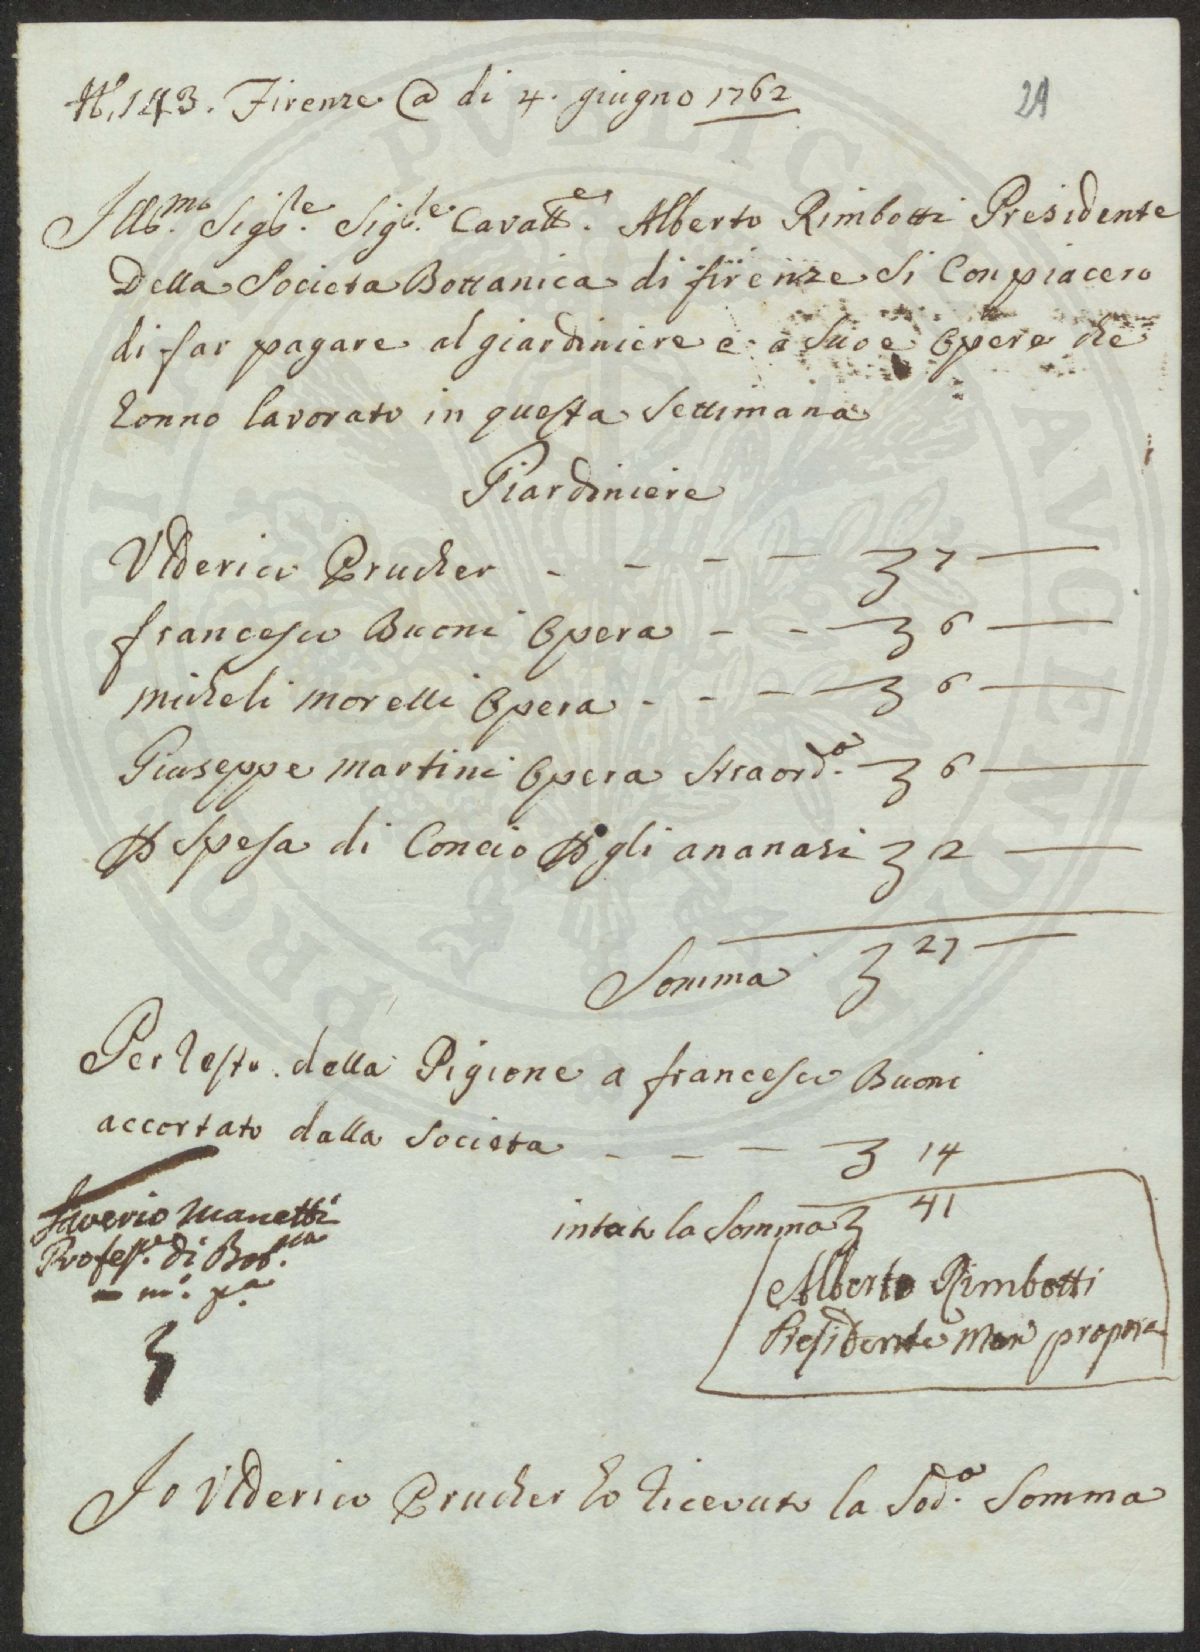 N.º 143. Firenze @ di 4. giugno 1762
21
Illmo. Sigle. Sigle. Cavalle. Alberto Rimbotti Presidente
Della Societa Bottanica di firenze Si Conpiacero
di far pagare al giardiniere e a Suoe Opere che
honno lavorato in questa Settimana
Giardiniere
Ulderico Prucher - - - - 7 —
francesco Buoni Opera - - - 6 —
micheli morelli Opera - - - 6 —
Giuseppe martini Opera straorda. 6 —
Spesa di Concio gli ananasi 2 —
Somma 27 —
Per resto della Pigione a francesco Buoni
accortato dalla Societa - - - 14
in tato la Somma 41
Saverio Manetti
Professe. di Botca.
mo. pa.
Alberto Rimbotti
Presidente Man propria
Io Ulderico Prucher ho ricevuto la Soda. Somma
PROSPERITATI PVBLICAE AVGENDAE